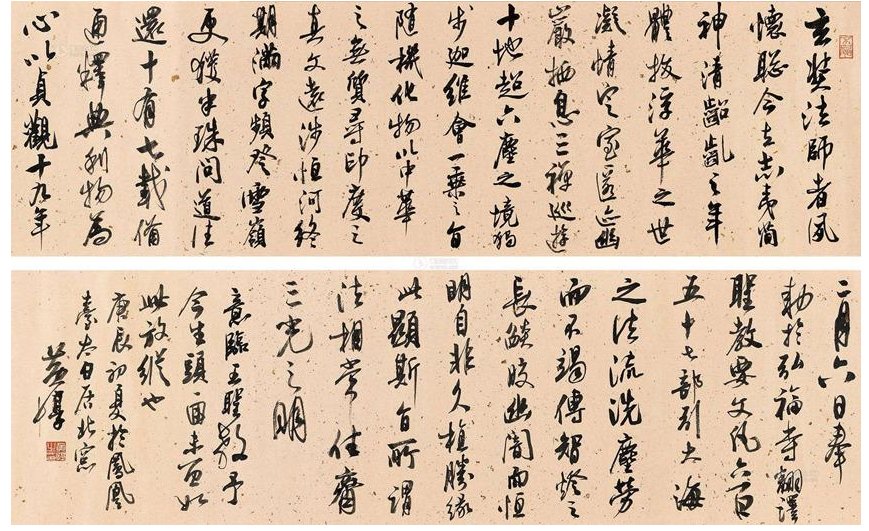 玄奘法師者夙
懷聰令立志夷簡
神清齠齔之年
體拔浮華之世
凝情定室匿迹幽
巖栖息三禪巡遊
十地超六塵之境獨
步迦維會一乘之旨
隨機化物以中華
之無質尋印度之
真文遠涉恒河終
期滿字頻登雪嶺
更獲半珠問道往
還十有七載備
通釋典利物為
心以貞觀十九年
二月六日奉
勅於弘福寺翻譯
聖教要文凡六百
五十七部引大海
之法流洗塵勞
而不竭傳智燈之
長燄皎幽闇而恒
明自非久植勝緣
顯斯旨所謂
法相常住齊
三光之明
意臨王聖教予
今生頭面未如
此放縱也
庚辰初夏於鳳凰
臺太白居北窗
黃惇